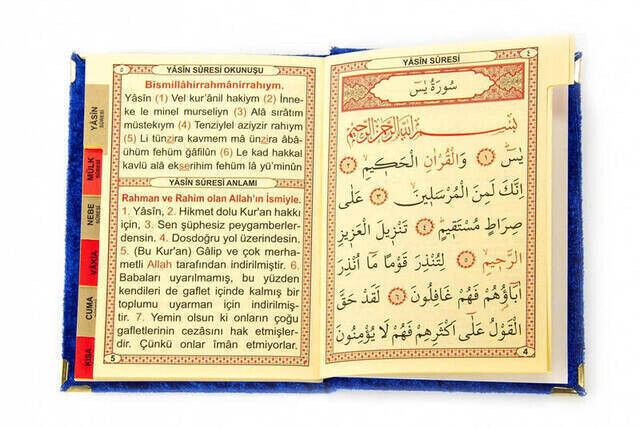 YÂSÎN SÛRESİ OKUNUŞU
Bismillâhirrahmânirrahıym.
Yâsîn (1) Vel kur'ânil hakiym (2) İnne-
ke le minel murseliyn (3) Alâ sırâtım
müstekıym (4) Tenziylel aziyzir rahıym
(5) Li tünzira kavmem mâ ünzira âbâ-
ühüm fehüm ğâfilûn (6) Le kad hakkal
kavlü alâ ekserihim fehüm lâ yü'minûn
YÂSÎN SÛRESİ ANLAMI
Rahman ve Rahim olan Allah'ın İsmiyle.
1. Yâsîn, 2. Hikmet dolu Kur'an hakkı
için, 3. Sen şüphesiz peygamberler-
densin. 4. Dosdoğru yol üzerindesin.
5. (Bu Kur'an) Gâlip ve çok merha-
metli Allah tarafından indirilmiştir. 6.
Babaları uyarılmamış, bu yüzden
kendileri de gaflet içinde kalmış bir
toplumu uyarman için indirilmiş-
tir. 7. Yemin olsun ki onların çoğu
gafletlerinin cezasını hak etmişler-
dir. Çünkü onlar îmân etmiyorlar.
5
YÂSÎN
SÛRESİ
MÜLK
SÛRESİ
NEBE
SÛRESİ
VÂKIA
CUMA
KISA
YÂSÎN SÛRESİ
٤
سُورَةُ يٰسٓ
بِسْمِ اللّٰهِ الرَّحْمٰنِ الرَّحِيمِ
يٰسٓ ١ وَالْقُرْاٰنِ الْحَكِيمِ ٢
اِنَّكَ لَمِنَ الْمُرْسَلِينَ ٣ عَلٰى
صِرَاطٍ مُسْتَقِيمٍ ٤ تَنْزِيلَ الْعَزِيزِ
الرَّحِيمِ ٥ لِتُنْذِرَ قَوْمًا مَٓا اُنْذِرَ
اٰبَٓاؤُهُمْ فَهُمْ غَافِلُونَ ٦ لَقَدْ حَقَّ
الْقَوْلُ عَلٰٓى اَكْثَرِهِمْ فَهُمْ لَا يُؤْمِنُونَ
4